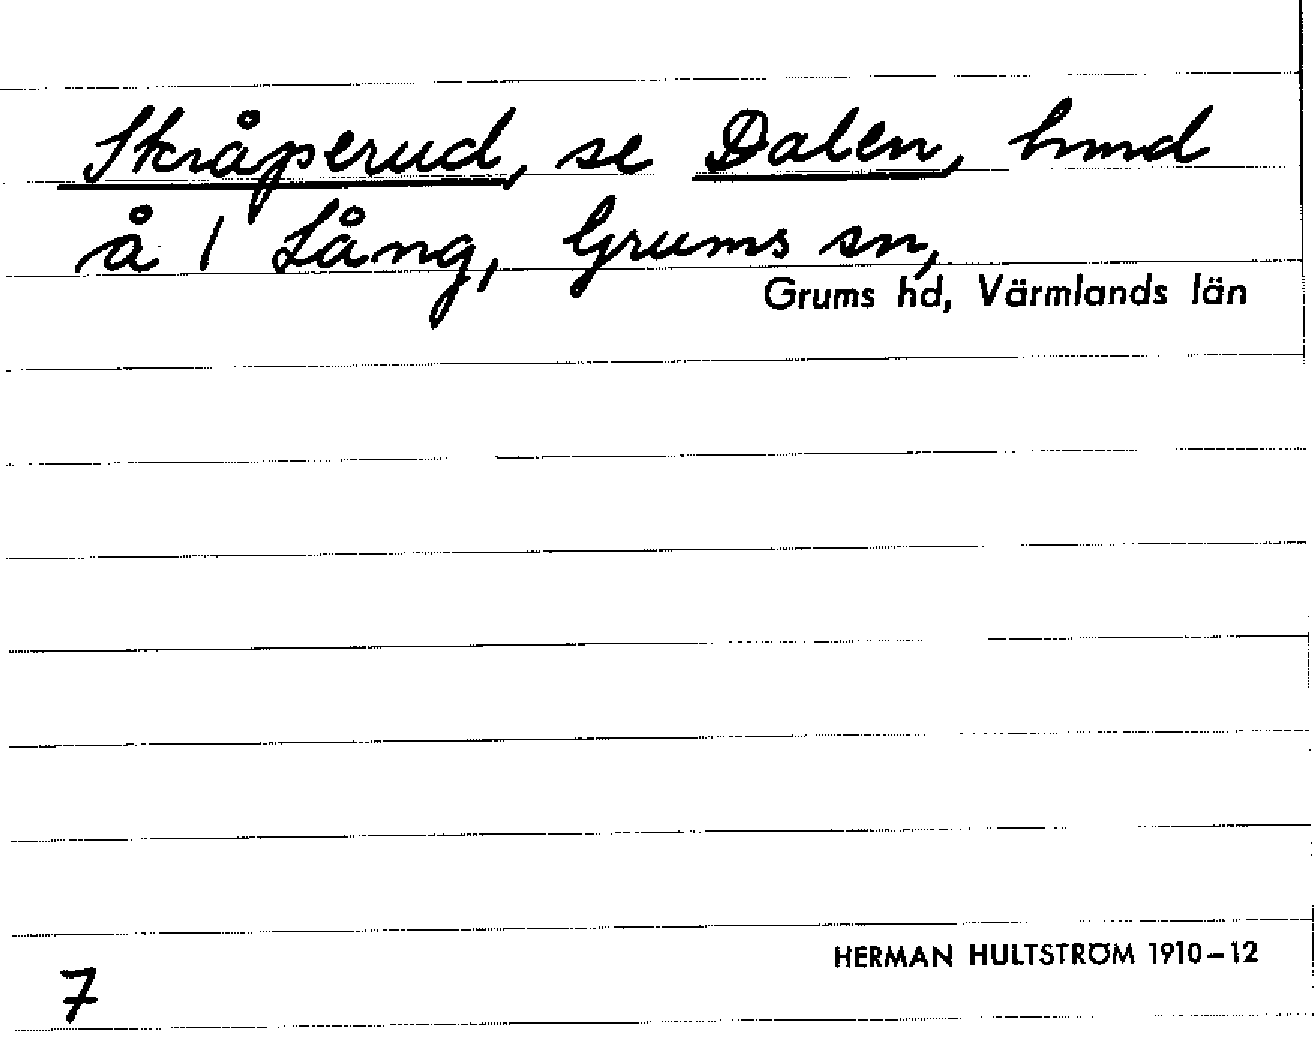 Skråperud, se Dalen, hmd
å 1 Lång, Grums sn,
Grums hd, Värmlands län
HERMAN HULTSTRÖM 1910-12
7